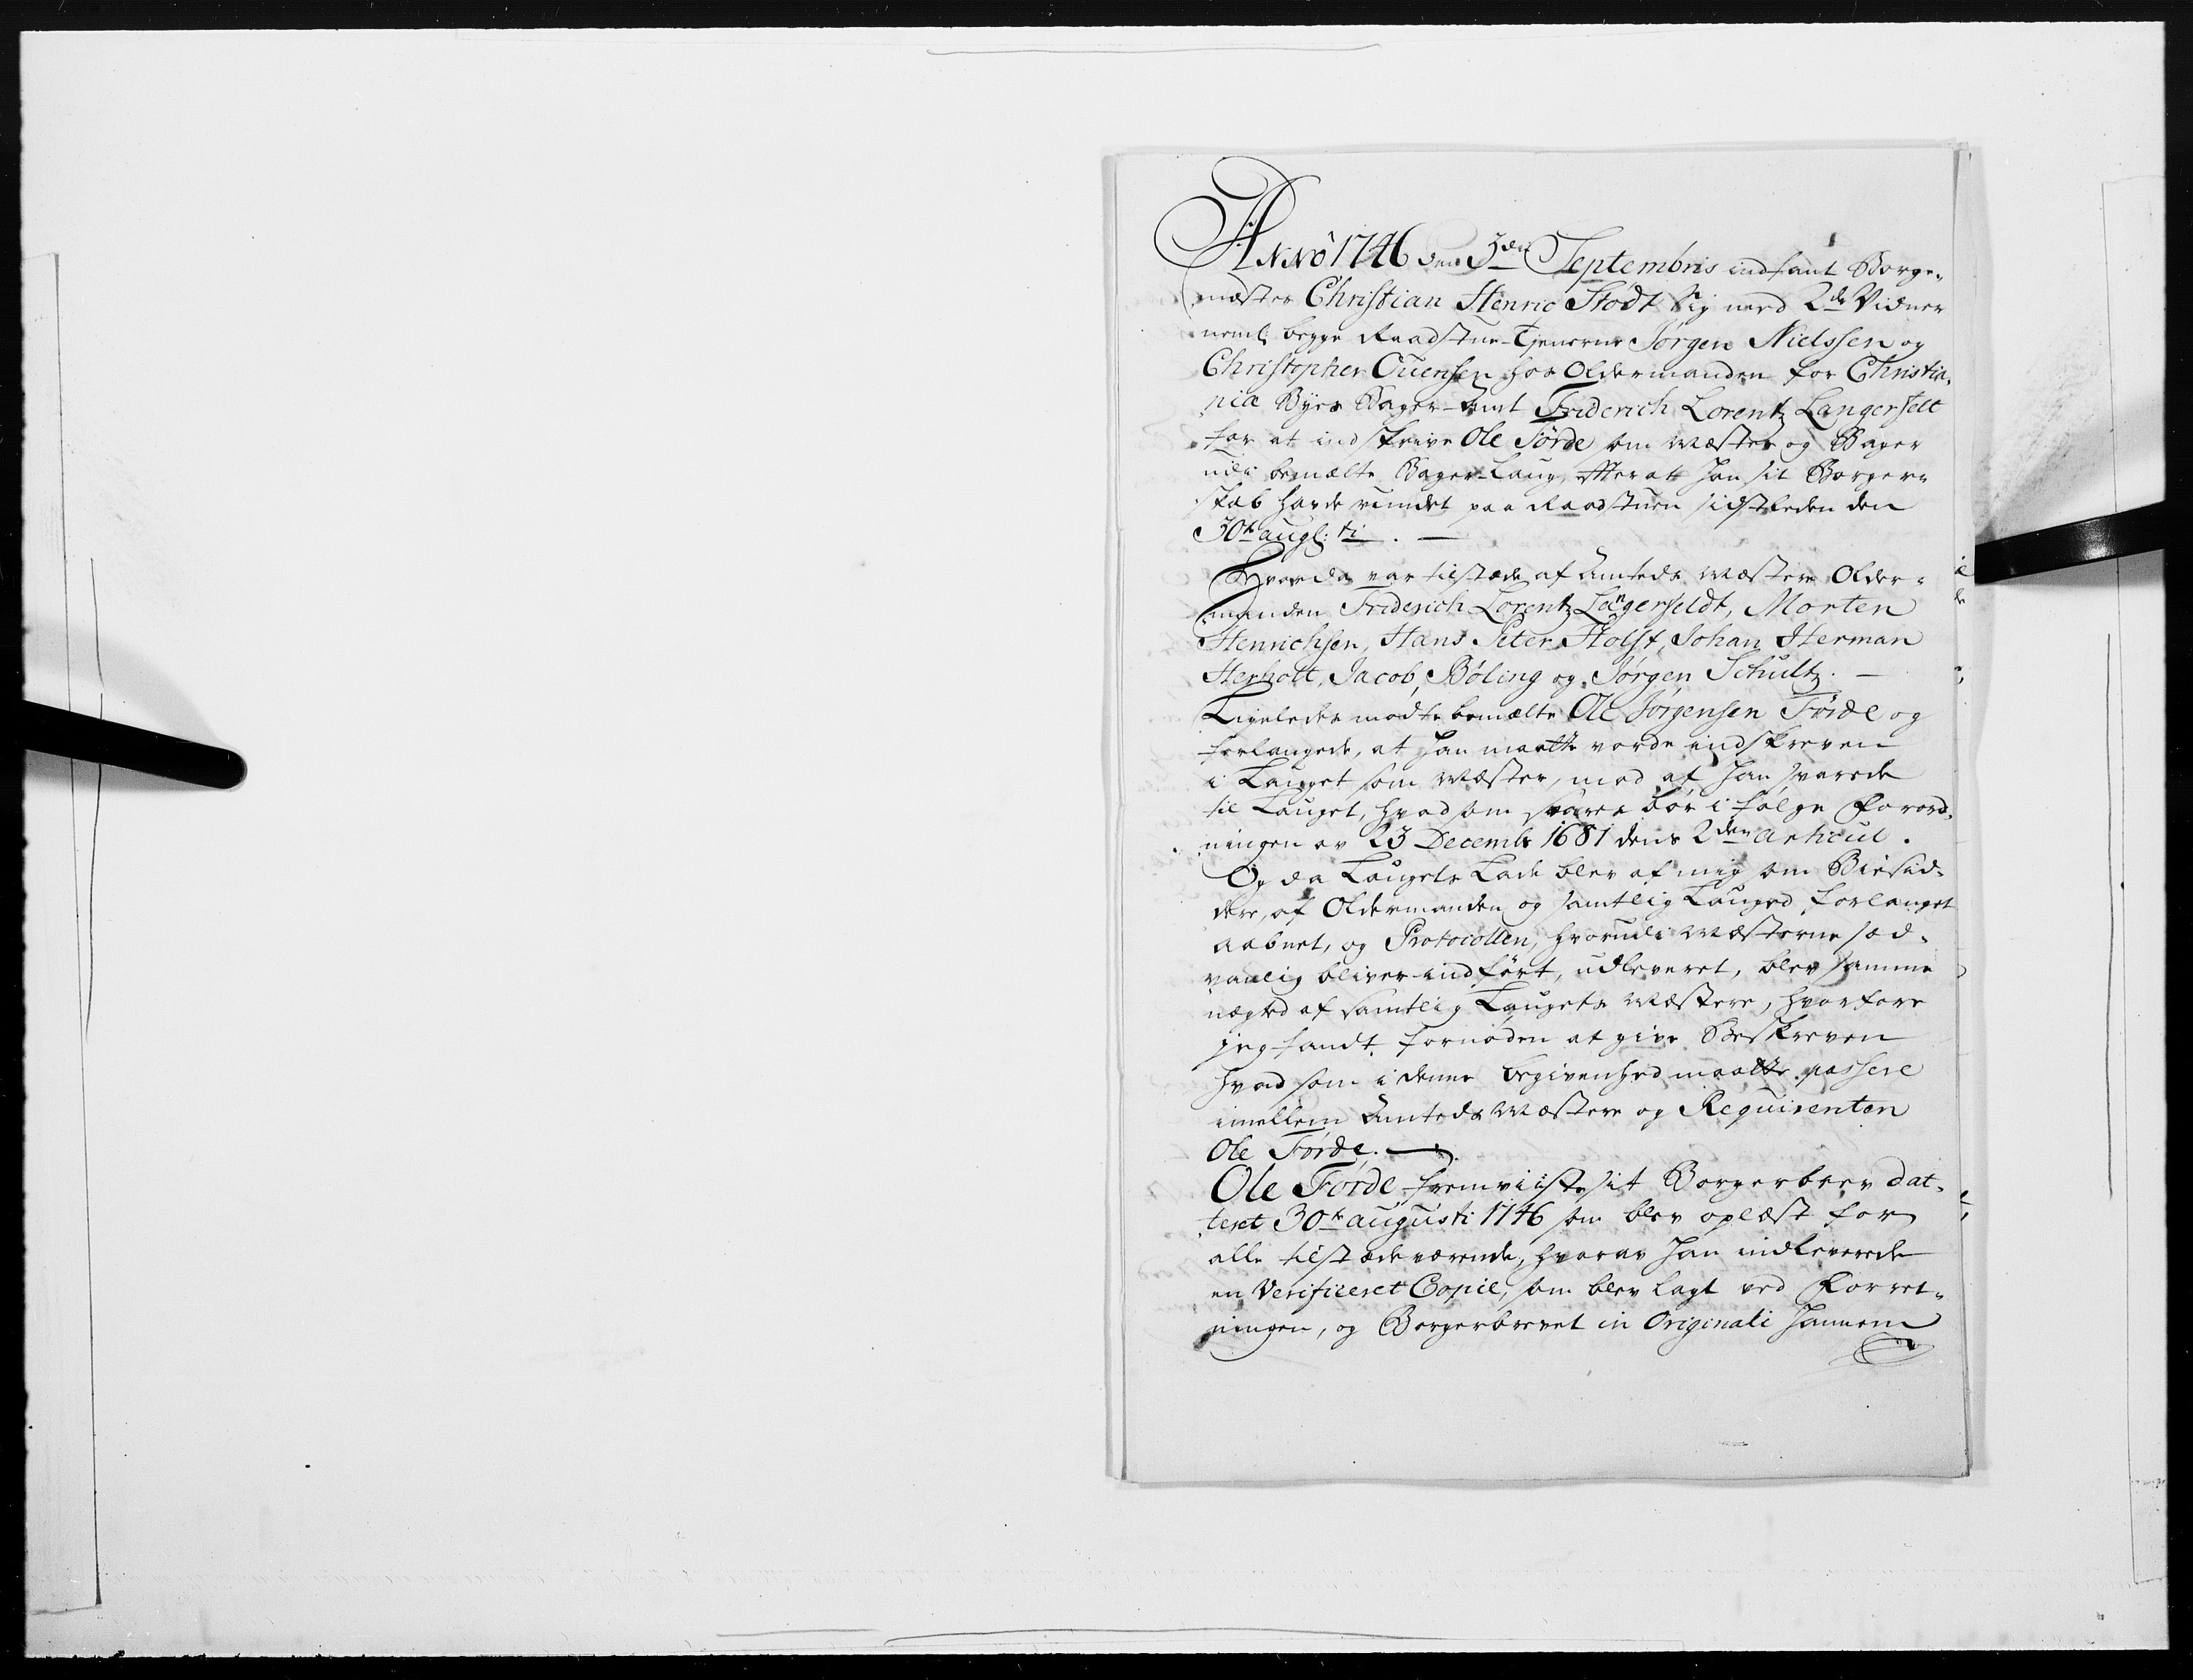 Anno 1746 den 3den Septembris indfant Borge-
mæster Christian Henric Stodt sig med 2de Vidner
neml: begge Raadstue-Tjenerne Jørgen Nielssen og
Christopher Ouensen hos Oldermanden for Christia-
nia Byes Bager-Amt Friderich Lorentz Langerfelt
for at indskrive Ole Førde som Mæster og Bager
udi bemælte Bager-Laug, efterat han sit Borger-
skab havde vundet paa Raadstuen sidstleden den
30te aug: ti. —
Hvorda var tilstæde af Amteds Mæstere Older-
manden Friderich Lorentz Langerfeldt, Morten
Henrichsen, Hans Peter Holst, Johan Herman
Herholt, Jacob Bøling og Jørgen Schultz. —
Ligeledes mødte bemælte Ole Jørgensen Førde og
forlangede, at han maatte vorde indskreven
i Lauget som Mæster, mod at han svarede
til Lauget, hvad som svares bør i følge Forord-
ningen av 23 Decembr 1681 dens 2den Articul.
Og da Laugets Lade blev af mig som Biesid-
dere, af Oldermanden og samtlig Lauged forlanget
aabnet, og Protocollen, hvorudi Mæsterne sæd-
vanlig bliver indført, udleveret, blev samme
nægted af samtlig Laugets Mæstere, hvorfore
jeg fandt fornøden at give Beskreven
hvad som i denne begivenhed maatte passere
imellem Amteds Mæstere og Requirenten
Ole Førde. —
Ole Førde fremviiste sit Borgerbrev dat-
teret 30te augusti 1746 som blev oplæst for
alle tilstædeværende, hvorav han indleverede
en Verificeret Copie, som blev lagt ved Forret-
ningen, og Borgerbrevet in Originali hannem